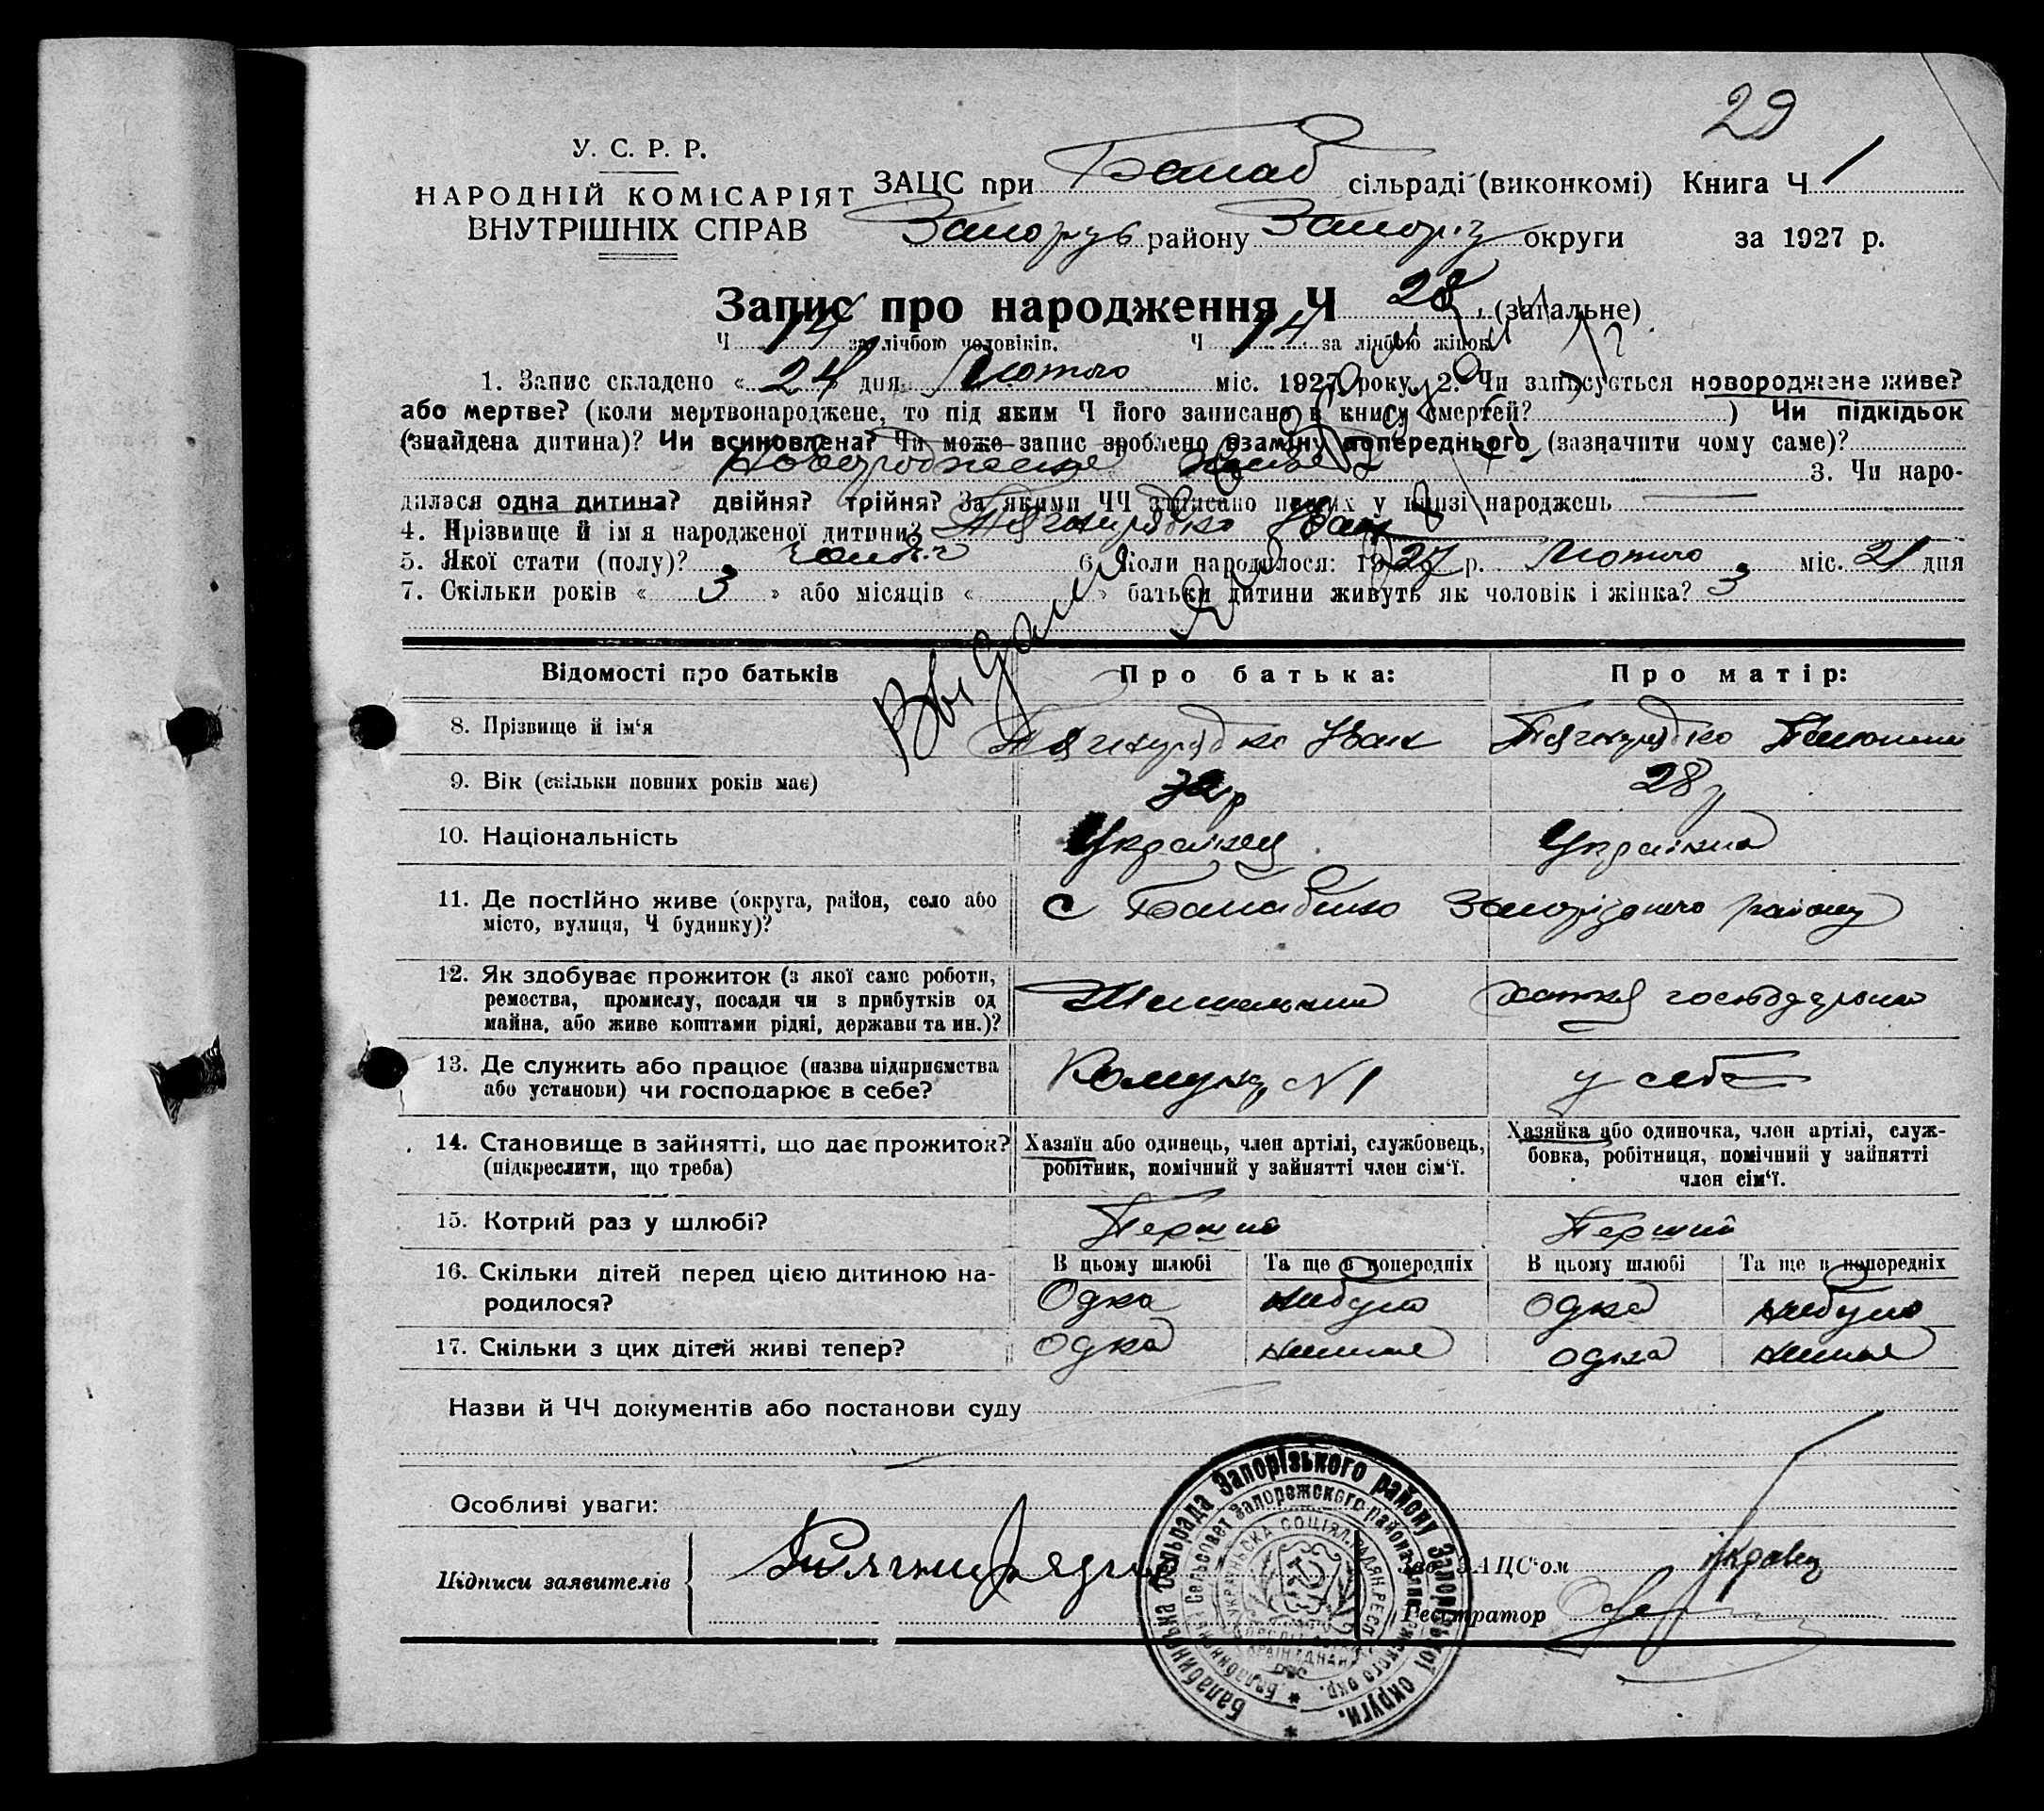 29
У. С. Р. Р.
НАРОДНІЙ КОМІСАРІЯТ
ВНУТРІШНІХ СПРАВ
ЗАЦС при Балаб сільраді (виконкомі) Книга Ч 1
району Запоріз округи за 1927 р.
Запис про народження Ч 28 (загальне)
Ч 14 за лічбою чоловіків. Ч 14 за лічбою жінок
1. Запис складено « 24 » дня Лютого міс. 1927 року. 2. Чи записується новороджене живе?
або мертве? (коли мертвонароджене, то під яким Ч його записано в книгу смертей? ) Чи підкідьок
(знайдена дитина)? Чи всиновлена? Чи може запис зроблено взаміну попереднього (зазначити чому саме)?
Новорожденне живе 3. Чи наро-
дилася одна дитина? двійня? трійня? За якими ЧЧ записано инших у книзі народжень
4. Прізвище й ім'я народженої дитини? Тягнирядко Іван
5. Якої стати (полу)? 6. Коли народилося: 1927 р. Лютого міс. 21 дня
7. Скільки років « 3 » або місяців « » батьки дитини живуть як чоловік і жінка? 3
Выдано
Відомості про батьків Про батька: Про матір:
8. Прізвище й ім'я Тягнирядко Іван Тягнирядко
9. Вік (скільки повних років має) 28 р
10. Національність Українец Українка
11. Де постійно живе (округа, район, село або
місто, вулиця, Ч будинку)?
с Балабино Запорізького району
12. Як здобуває прожиток (з якої саме роботи,
ремества, промислу, посади чи з прибутків од
майна, або живе коштами рідні, держави та ин.)?
хатня господарка
13. Де служить або працює (назва підприємства
або установи) чи господарює в себе?
Комунар N 1 у себе
14. Становище в зайнятті, що дає прожиток?
(підкреслити, що треба)
Хазяїн або одинець, член артілі, службовець,
робітник, помічний у зайнятті член сім'ї.
Хазяйка або одиночка, член артілі, служ-
бовка, робітниця, помічний у зайнятті
член сім'ї.
15. Котрий раз у шлюбі? Перший Перший
16. Скільки дітей перед цією дитиною на-
родилося?
В цьому шлюбі Та ще в попередніх В цьому шлюбі Та ще в попередніх
Одна небуло одна небуло
17. Скільки з цих дітей живі тепер? Одна немає одна немає
Назви й ЧЧ документів або постанови суду
Особливі уваги:
Підписи заявителів
Зав. ЗАЦС'ом
Реєстратор
Балабинська Сельрада Запорізького району Запорізької округи.
Балабинский Сельсовет Запорожского района Запорожского окр.